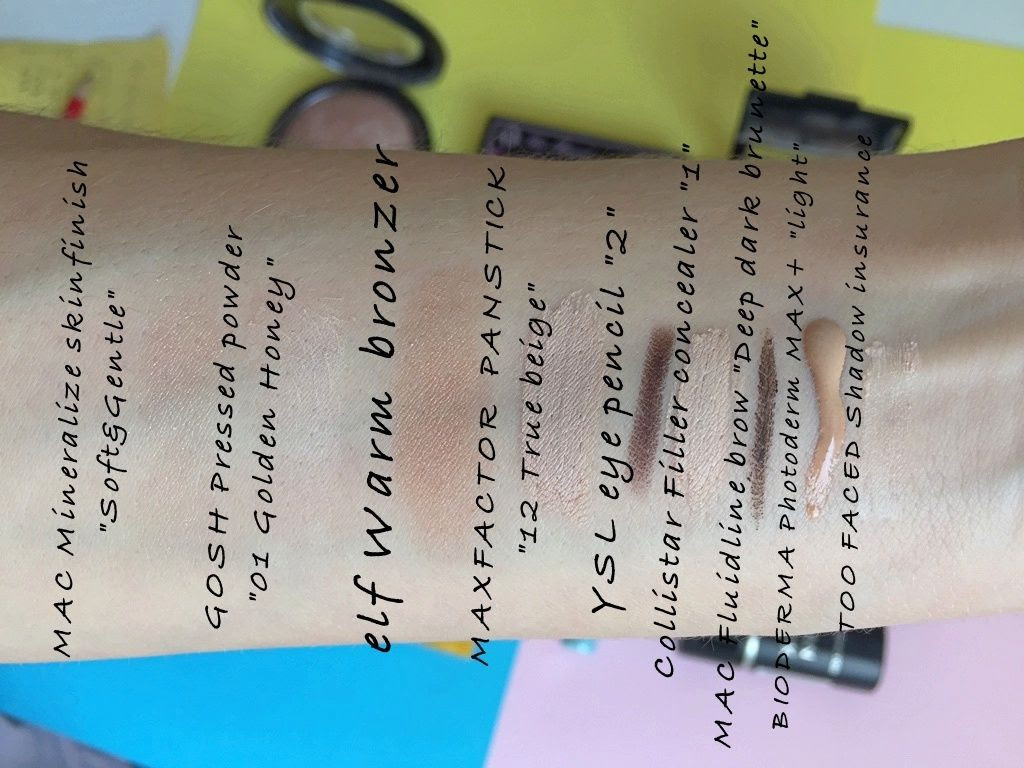 MAC Mineralize skinfinish
"Soft&Gentle"
GOSH Pressed powder
"01 Golden Honey"
elf warm bronzer
MAXFACTOR PANSTICK
"12 True beige"
YSL eye pencil "2"
Collistar Filler concealer "1"
MAC Fluidline brow "Deep dark brunette"
BIODERMA Photoderm MAX + "light"
TOO FACED Shadow insurance